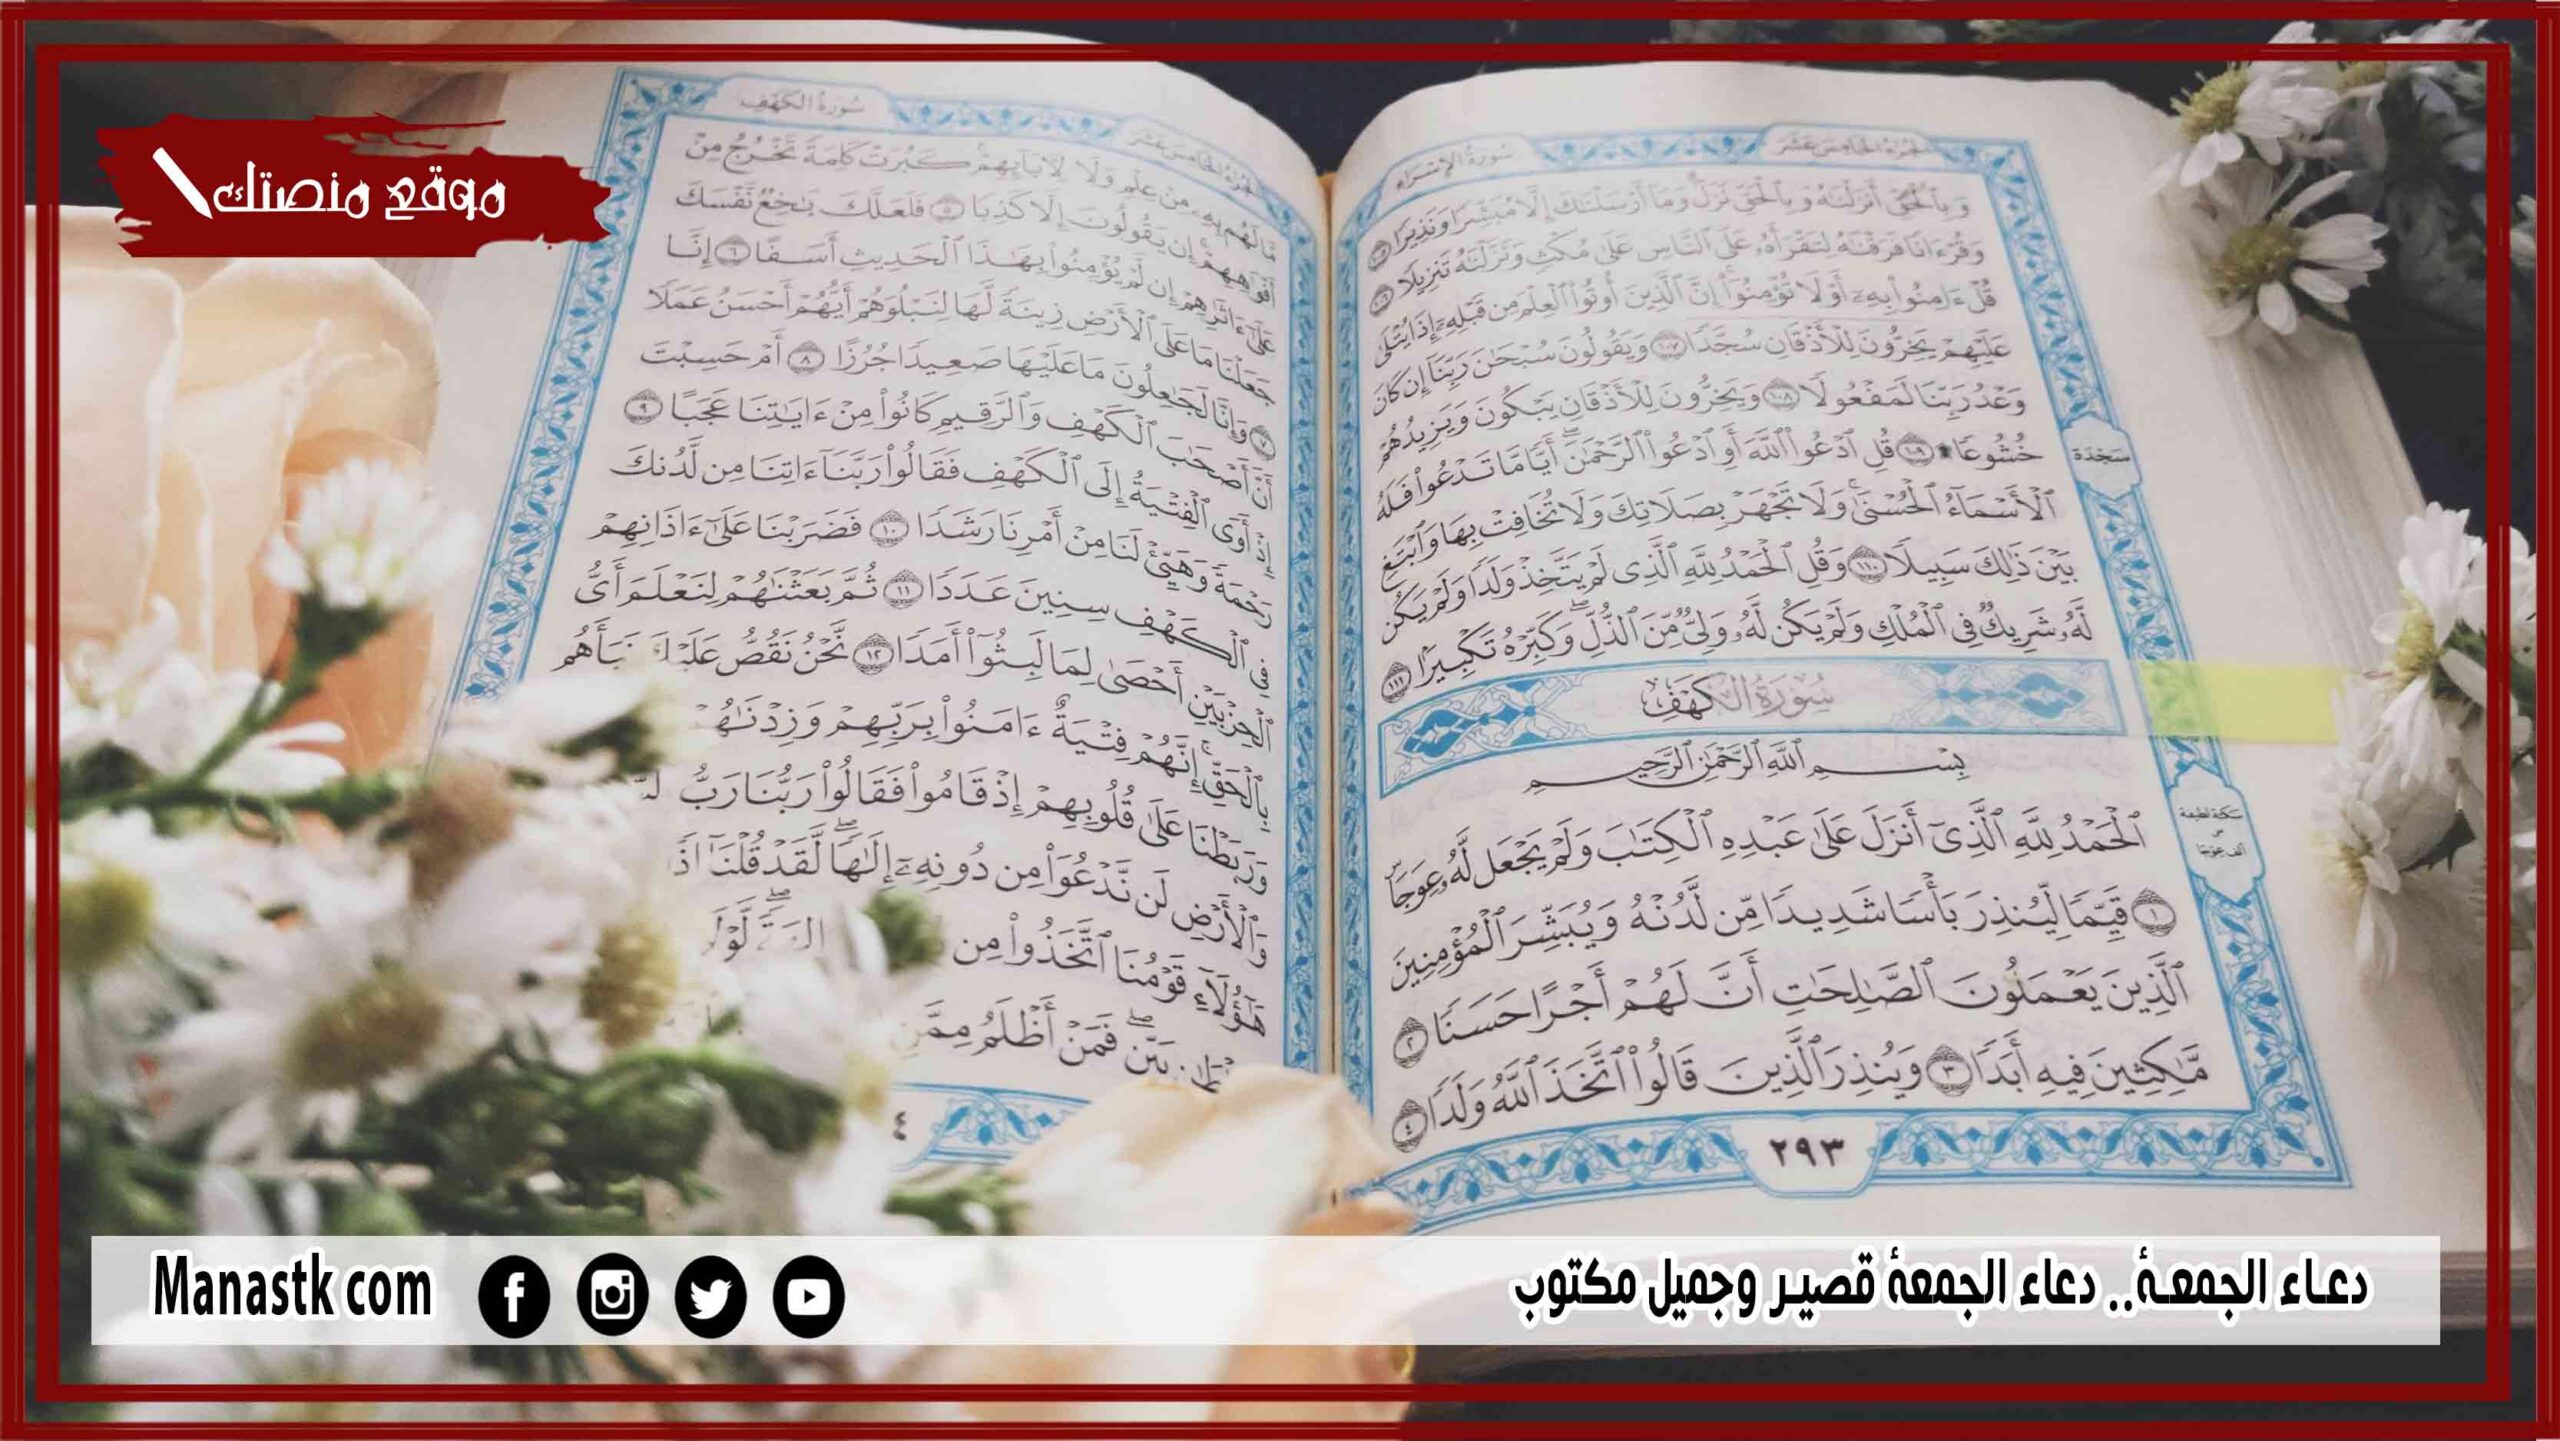 موقع منصتك
سورة الإسراء
الجزء الخامس عشر
وَبِٱلْحَقِّ أَنزَلْنَٰهُ وَبِٱلْحَقِّ نَزَلَ وَمَآ أَرْسَلْنَٰكَ إِلَّا مُبَشِّرًا وَنَذِيرًا ١٠٥
وَقُرْءَانًا فَرَقْنَٰهُ لِتَقْرَأَهُۥ عَلَى ٱلنَّاسِ عَلَىٰ مُكْثٍ وَنَزَّلْنَٰهُ تَنزِيلًا ١٠٦
قُلْ ءَامِنُوا۟ بِهِۦٓ أَوْ لَا تُؤْمِنُوٓا۟ إِنَّ ٱلَّذِينَ أُوتُوا۟ ٱلْعِلْمَ مِن قَبْلِهِۦٓ إِذَا يُتْلَىٰ
عَلَيْهِمْ يَخِرُّونَ لِلْأَذْقَانِ سُجَّدًا ١٠٧ وَيَقُولُونَ سُبْحَٰنَ رَبِّنَآ إِن كَانَ
وَعْدُ رَبِّنَا لَمَفْعُولًا ١٠٨ وَيَخِرُّونَ لِلْأَذْقَانِ يَبْكُونَ وَيَزِيدُهُمْ
خُشُوعًا ۩ ١٠٩ قُلِ ٱدْعُوا۟ ٱللَّهَ أَوِ ٱدْعُوا۟ ٱلرَّحْمَٰنَ ۖ أَيًّا مَّا تَدْعُوا۟ فَلَهُ
سجدة
ٱلْأَسْمَآءُ ٱلْحُسْنَىٰ ۚ وَلَا تَجْهَرْ بِصَلَاتِكَ وَلَا تُخَافِتْ بِهَا وَٱبْتَغِ
بَيْنَ ذَٰلِكَ سَبِيلًا ١١٠ وَقُلِ ٱلْحَمْدُ لِلَّهِ ٱلَّذِى لَمْ يَتَّخِذْ وَلَدًا وَلَمْ يَكُن
لَّهُۥ شَرِيكٌ فِى ٱلْمُلْكِ وَلَمْ يَكُن لَّهُۥ وَلِىٌّ مِّنَ ٱلذُّلِّ ۖ وَكَبِّرْهُ تَكْبِيرًا ١١١
سورة الكهف
بِسْمِ ٱللَّهِ ٱلرَّحْمَٰنِ ٱلرَّحِيمِ
ٱلْحَمْدُ لِلَّهِ ٱلَّذِىٓ أَنزَلَ عَلَىٰ عَبْدِهِ ٱلْكِتَٰبَ وَلَمْ يَجْعَل لَّهُۥ عِوَجَا ۜ
سكتة لطيفة
١ قَيِّمًا لِّيُنذِرَ بَأْسًا شَدِيدًا مِّن لَّدُنْهُ وَيُبَشِّرَ ٱلْمُؤْمِنِينَ
ٱلَّذِينَ يَعْمَلُونَ ٱلصَّٰلِحَٰتِ أَنَّ لَهُمْ أَجْرًا حَسَنًا ٢
مَّٰكِثِينَ فِيهِ أَبَدًا ٣ وَيُنذِرَ ٱلَّذِينَ قَالُوا۟ ٱتَّخَذَ ٱللَّهُ وَلَدًا ٤
٢٩٣
الجزء الخامس عشر
سورة الكهف
مَّا لَهُم بِهِۦ مِنْ عِلْمٍ وَلَا لِءَابَآئِهِمْ ۚ كَبُرَتْ كَلِمَةً تَخْرُجُ مِنْ
أَفْوَٰهِهِمْ ۚ إِن يَقُولُونَ إِلَّا كَذِبًا ٥ فَلَعَلَّكَ بَٰخِعٌ نَّفْسَكَ
عَلَىٰٓ ءَاثَٰرِهِمْ إِن لَّمْ يُؤْمِنُوا۟ بِهَٰذَا ٱلْحَدِيثِ أَسَفًا ٦ إِنَّا
جَعَلْنَا مَا عَلَى ٱلْأَرْضِ زِينَةً لَّهَا لِنَبْلُوَهُمْ أَيُّهُمْ أَحْسَنُ عَمَلًا
٧ وَإِنَّا لَجَٰعِلُونَ مَا عَلَيْهَا صَعِيدًا جُرُزًا ٨ أَمْ حَسِبْتَ
أَنَّ أَصْحَٰبَ ٱلْكَهْفِ وَٱلرَّقِيمِ كَانُوا۟ مِنْ ءَايَٰتِنَا عَجَبًا ٩
إِذْ أَوَى ٱلْفِتْيَةُ إِلَى ٱلْكَهْفِ فَقَالُوا۟ رَبَّنَآ ءَاتِنَا مِن لَّدُنكَ
رَحْمَةً وَهَيِّئْ لَنَا مِنْ أَمْرِنَا رَشَدًا ١٠ فَضَرَبْنَا عَلَىٰٓ ءَاذَانِهِمْ
فِى ٱلْكَهْفِ سِنِينَ عَدَدًا ١١ ثُمَّ بَعَثْنَٰهُمْ لِنَعْلَمَ أَىُّ
ٱلْحِزْبَيْنِ أَحْصَىٰ لِمَا لَبِثُوٓا۟ أَمَدًا ١٢ نَّحْنُ نَقُصُّ عَلَيْكَ نَبَأَهُم
بِٱلْحَقِّ ۚ إِنَّهُمْ فِتْيَةٌ ءَامَنُوا۟ بِرَبِّهِمْ وَزِدْنَٰهُمْ
وَرَبَطْنَا عَلَىٰ قُلُوبِهِمْ إِذْ قَامُوا۟ فَقَالُوا۟ رَبُّنَا رَبُّ
وَٱلْأَرْضِ لَن نَّدْعُوَا۟ مِن دُونِهِۦٓ إِلَٰهًا ۖ لَّقَدْ قُلْنَآ
هَٰٓؤُلَآءِ قَوْمُنَا ٱتَّخَذُوا۟ مِن
بَيِّنٍ ۖ فَمَنْ أَظْلَمُ مِمَّنِ
دعاء الجمعة.. دعاء الجمعة قصير وجميل مكتوب
Manastk com